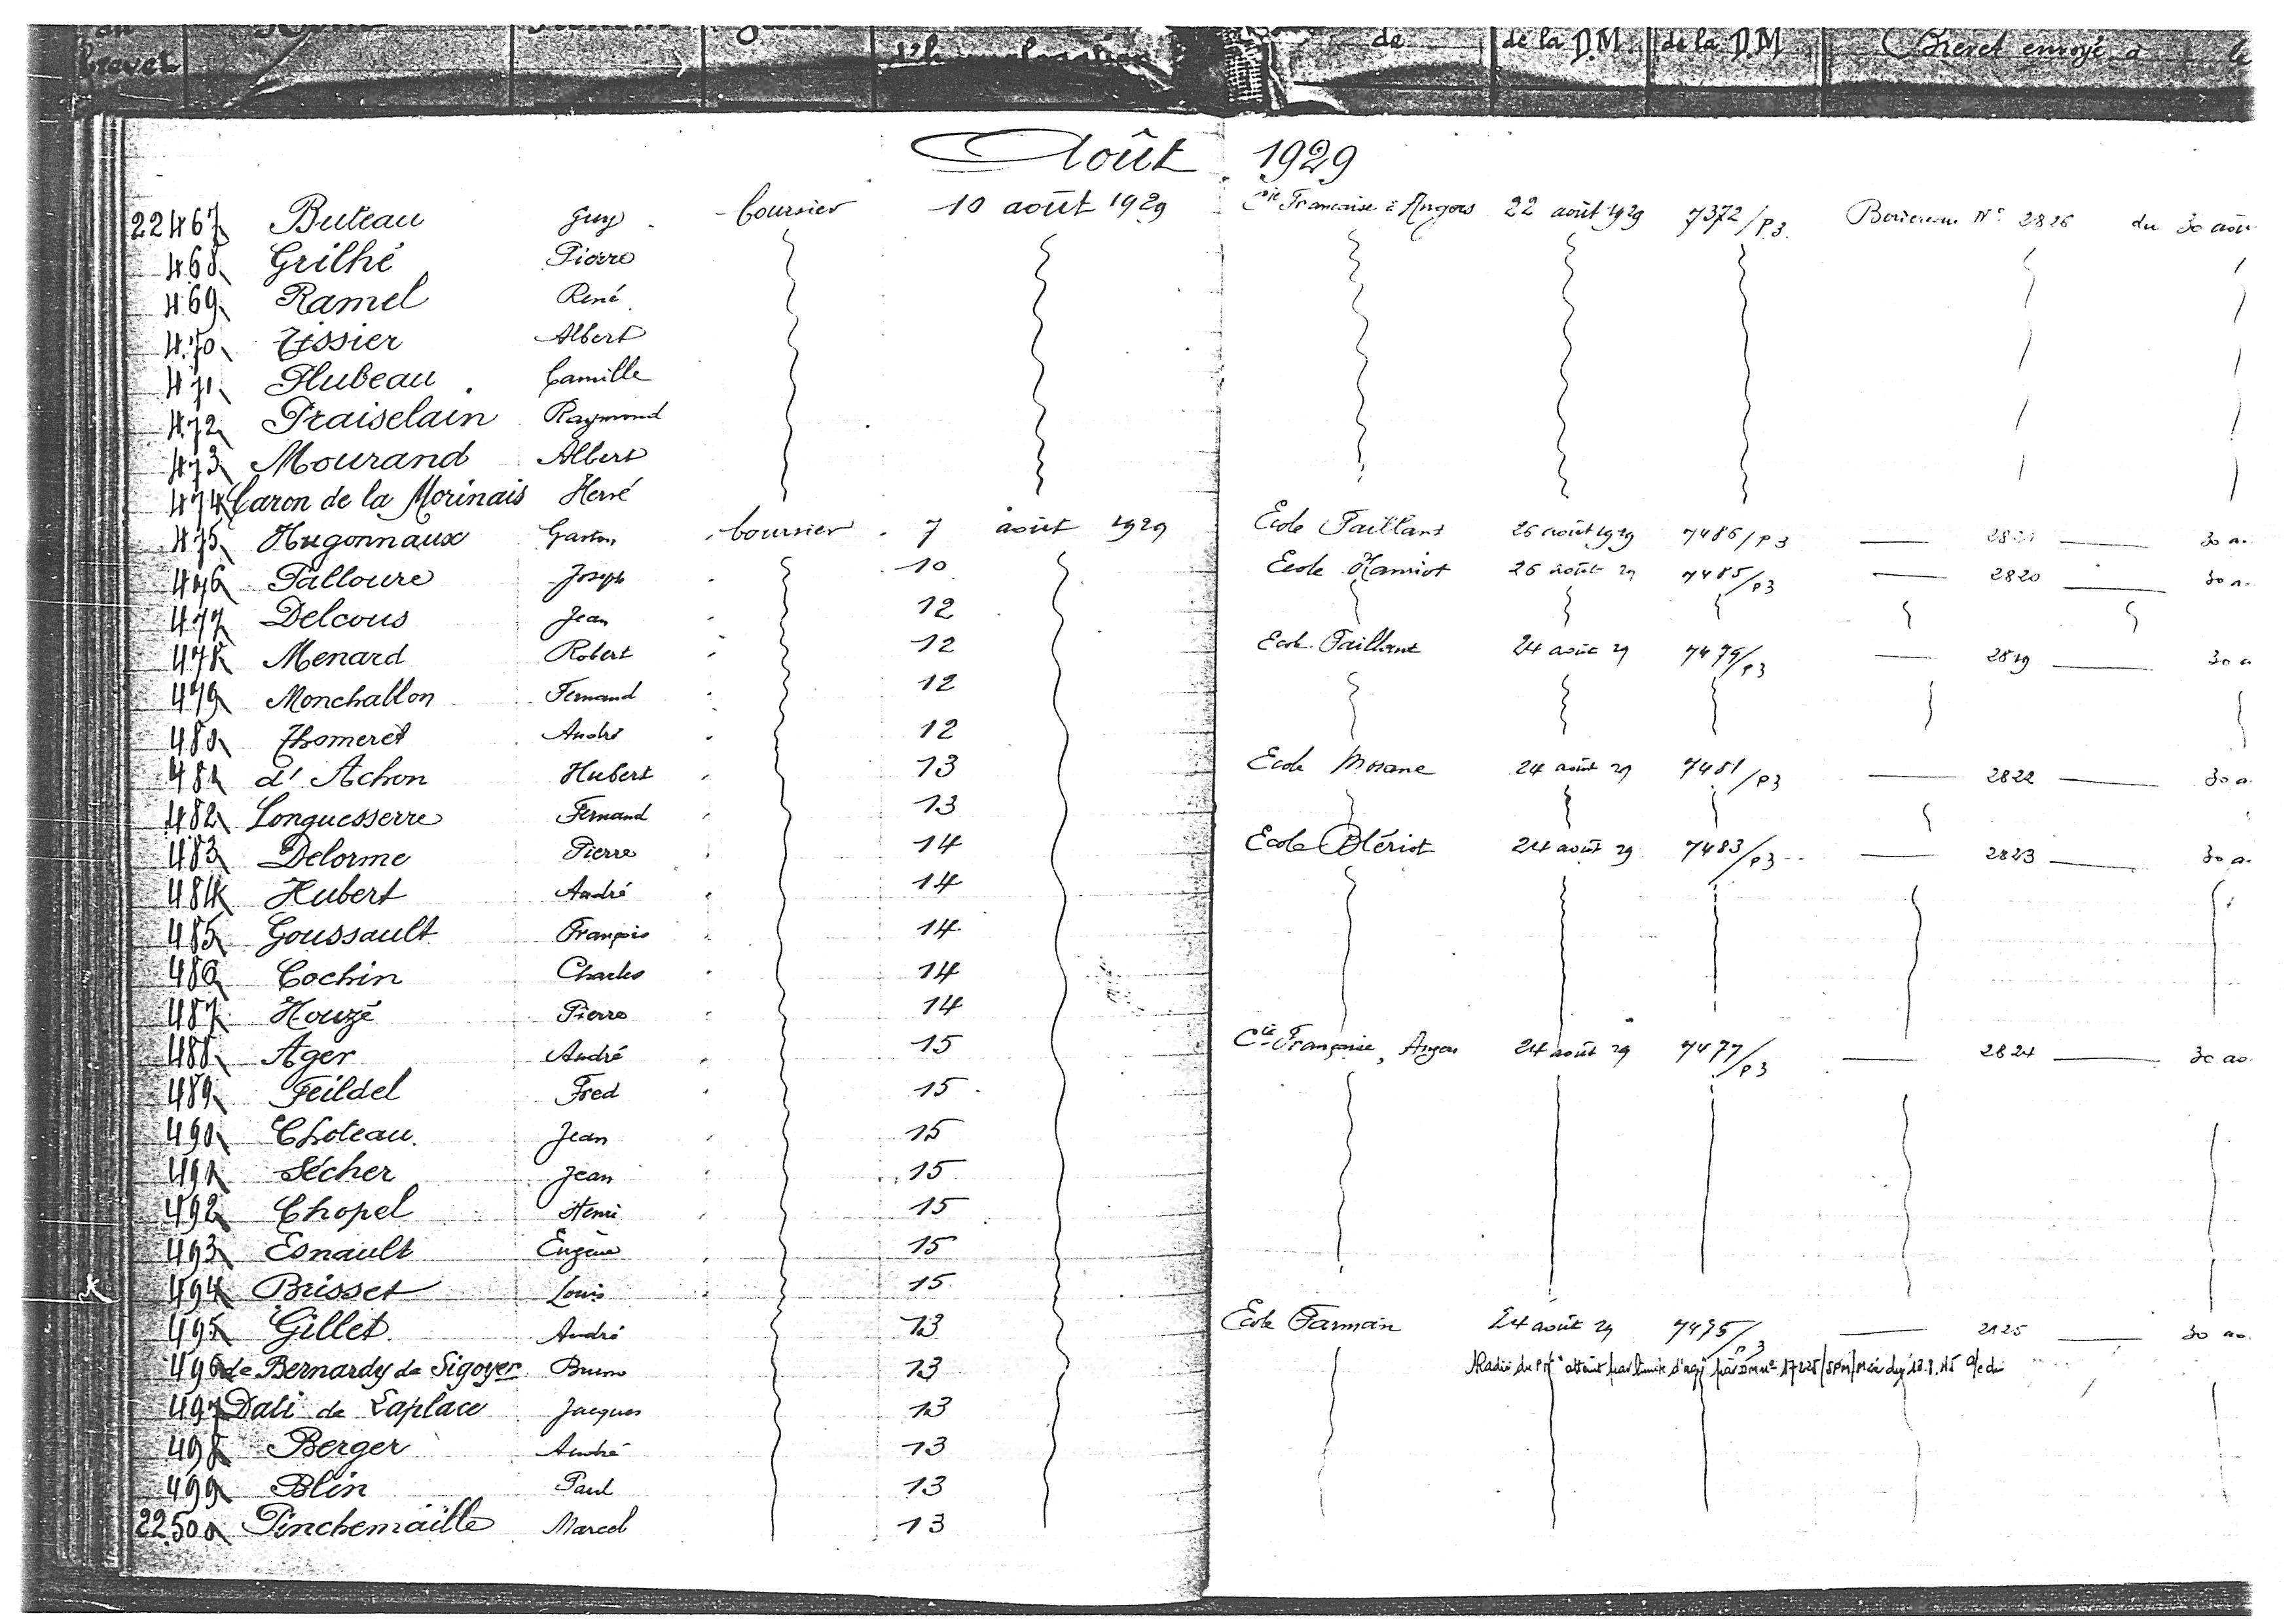 Brevet de de la DM de la DM Brevet envoyé à le
Août 1929
22467 Buteau Guy boursier 10 août 1929 Cie Française à Angers 22 août 1929 7372/P3 Bordereau N° 2826 du 30 août
468 Grilhé Pierre
469 Ramel René
470 Tissier Albert
471 Flubeau Camille
472 Fraiselain Raymond
473 Mourand Albert
474 Caron de la Morinais Hervé
475 Hugonnaux Gaston boursier 7 août 1929 Ecole Taillant 26 août 1929 7486/P3 30 a
476 Palloure Joseph 10 Ecole Hanriot 26 août 29 7485/P3 2820 30 a
477 Delcous Jean 12
478 Menard Robert 12 Ecole Taillant 24 août 29 7479/P3 2819 30 a
479 Monchallon Fernand 12
480 Thomeret André 12
481 d'Achon Hubert 13 Ecole Morane 24 août 29 7481/P3 2822 30 a
482 Longuesserre Fernand 13
483 Delorme Pierre 14 Ecole Blériot 24 août 29 7483/P3 2823 30 a
484 Hubert André 14
485 Goussault François 14
486 Cochin Charles 14
487 Houzé Pierre 14
488 Ager André 15 Cie Française, Angers 24 août 29 7477/P3 2824 30 ao
489 Feildel Fred 15
490 Choteau Jean 15
491 Sécher Jean 15
492 Chopel Henri 15
493 Esnault Eugène 15
494 Brisset Louis 15
495 Gillet André 13 Ecole Farman 24 août 29 7475/P3 2825 30 ao
496 de Bernardy de Sigoyer Bruno 13 Radié du PN "atteint par limite d'age" par DM n° 17225/SPM/
497 Dati de Laplace Jacques 13
498 Berger André 13
499 Blin Paul 13
22500 Pinchemaille Marcel 13